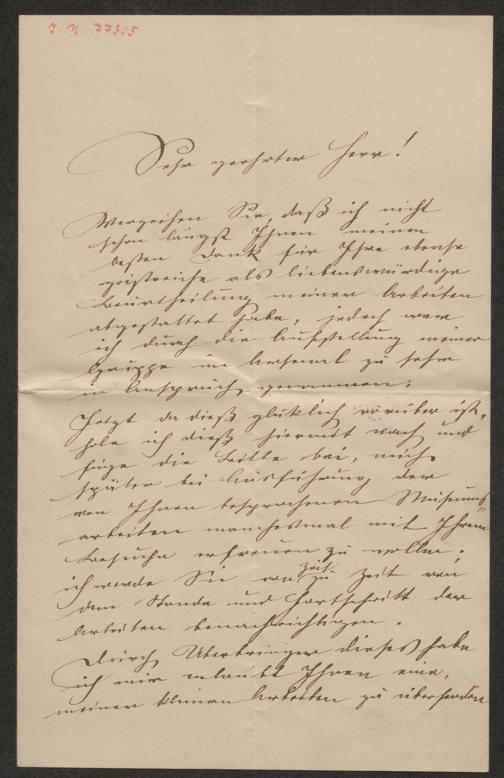 J. N. 77305
Sehr geehrter Herr!
Verzeihen Sie, daß ich nicht
schon längst Ihnen meinen
besten Dank für Ihre ebenso
geistreiche als liebenswürdige
Beurtheilung meiner Arbeiten
abgestattet habe, jedoch war
ich durch die Aufstellung meiner
Gruppe im Arsenal zu sehr
in Anspruch genommen;
Jetzt da dieß glüklich vorüber ist,
hole ich dieß hiermit nach und
füge die Bitte bei, mich
später bei Ausführung der
von Ihnen besprochenen Museums=
arbeiten manchesmal mit Ihrem
Besuche erfreuen zu wollen.
ich werde Sie von Zeit zu Zeit von
dem Stande und Fortschritt der
Arbeiten benachrichtigen.
Durch Überbringer dieses habe
ich mir erlaubt Ihnen eine,
meiner kleinen Arbeiten zu übersenden